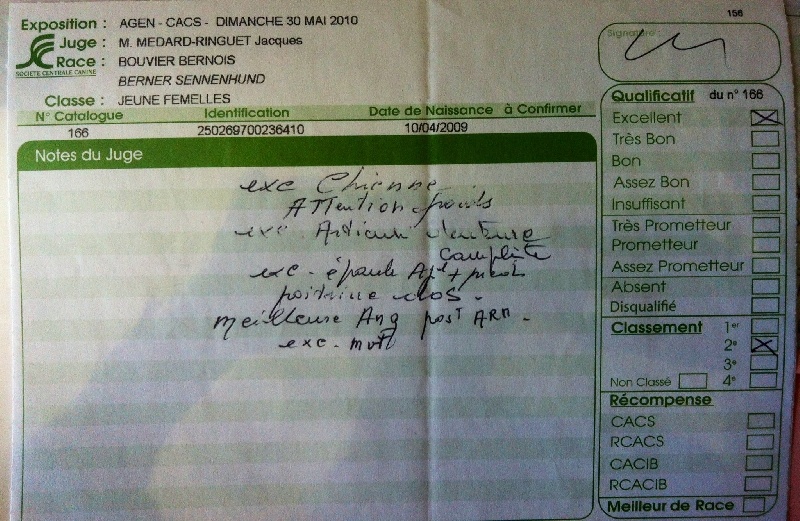 156
Exposition : AGEN - CACS - DIMANCHE 30 MAI 2010
Juge : M. MEDARD-RINGUET Jacques
Race : BOUVIER BERNOIS
BERNER SENNENHUND
SOCIETE CENTRALE CANINE
Classe : JEUNE FEMELLES
N° Catalogue Identification Date de Naissance à Confirmer
166 250269700236410 10/04/2009
Notes du Juge
exc Chienne
Attention poids
exc - denture
complète
exc - épaule +
poitrine dos -
meilleure Ang post ARR -
exc -
Signature :
Qualificatif du n° 166
Excellent
Très Bon
Bon
Assez Bon
Insuffisant
Très Prometteur
Prometteur
Assez Prometteur
Absent
Disqualifié
Classement 1er
2e
3e
Non Classé 4e
Récompense
CACS
RCACS
CACIB
RCACIB
Meilleur de Race